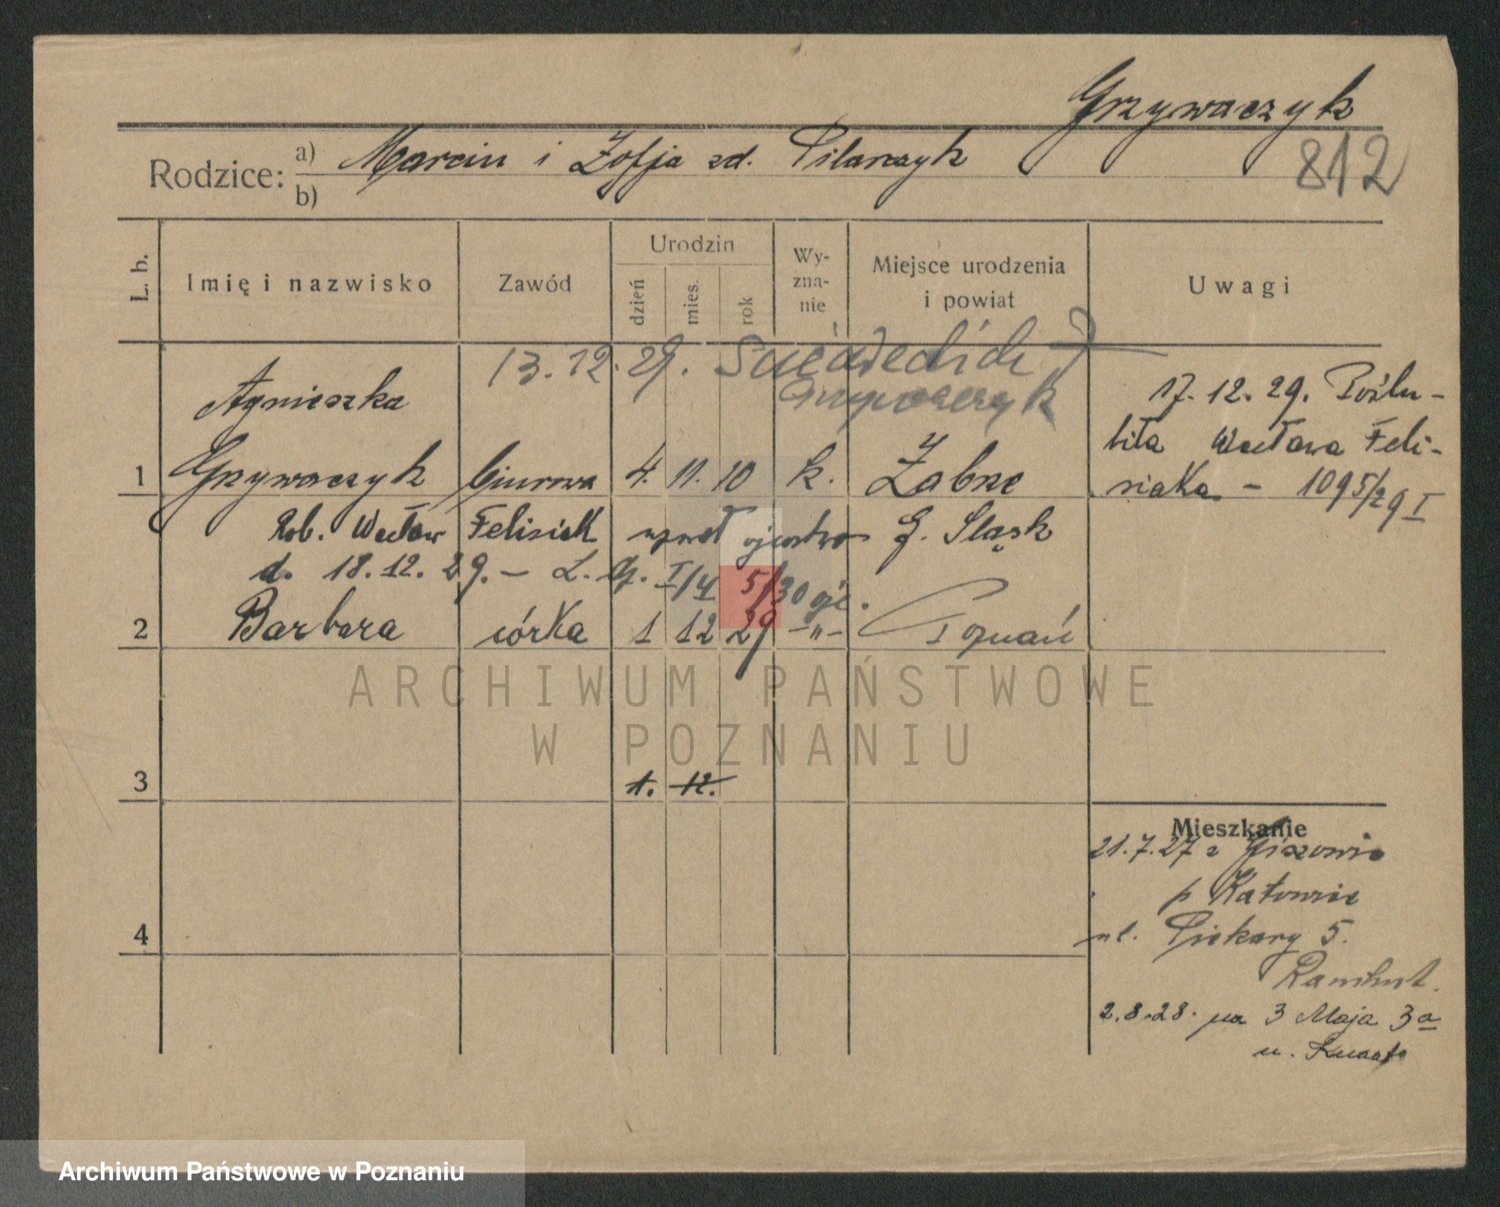 Grzywaczyk
812
Rodzice: a) Marcin i Zofja zd. Pilarczyk
b)
L. b. Imię i nazwisko Zawód Urodzin dzień mies. rok Wyznanie Miejsce urodzenia i powiat Uwagi
13.12.29.
Agnieszka
17.12.29. Poślu-
biła Wacława Feli-
1 Grzywaczyk biurowa 4. 11. 10 k. Zabrze
siaka - 1095/29 I
Rob. Wacław Felisiak uznał ojcostwo G. Śląsk
d. 18.12.29. - L. G. I/4 5/30
2 Barbara córka 1 12 29 -"- Poznań
ARCHIWUM PAŃSTWOWE
W POZNANIU
3 1. 12.
Mieszkanie
21.7.27 z Giszowie
p Katowic
4
ul. Piekary 5.
2.8.28. na 3 Maja 3a
Archiwum Państwowe w Poznaniu